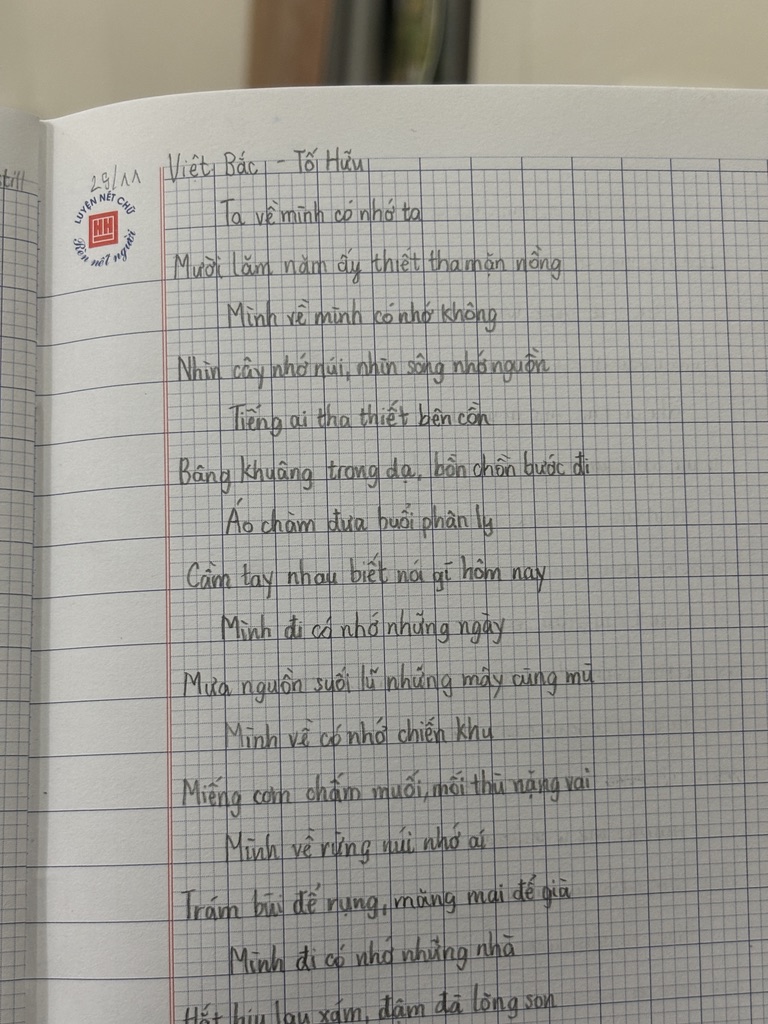 29/11
LUYỆN NẾT CHỮ
HH
Rèn nết người
Việt Bắc - Tố Hữu
Ta về mình có nhớ ta
Mười lăm năm ấy thiết tha mặn nồng
Mình về mình có nhớ không
Nhìn cây nhớ núi, nhìn sông nhớ nguồn
Tiếng ai tha thiết bên cồn
Bâng khuâng trong dạ, bồn chồn bước đi
Áo chàm đưa buổi phân ly
Cầm tay nhau biết nói gì hôm nay
Mình đi có nhớ những ngày
Mưa nguồn suối lũ những mây cùng mù
Mình về có nhớ chiến khu
Miếng cơm chấm muối, mối thù nặng vai
Mình về rừng núi nhớ ai
Trám bùi để rụng, măng mai để già
Mình đi có nhớ những nhà
Hắt hiu lau xám, đậm đà lòng son